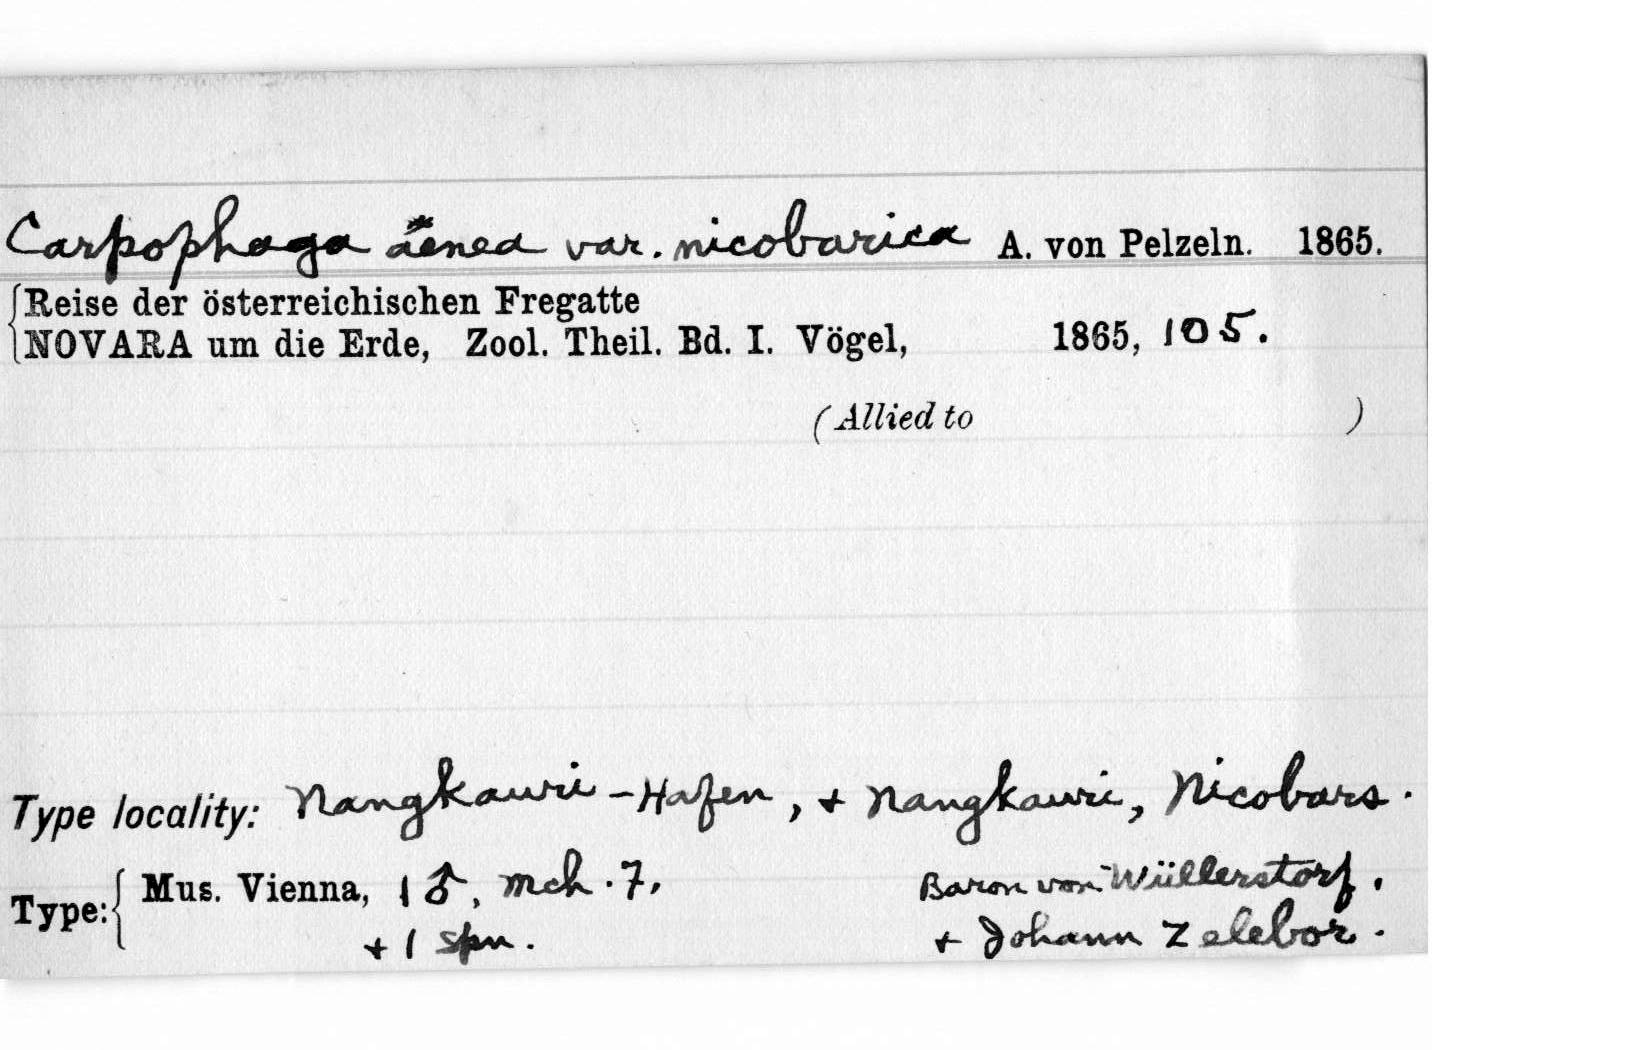 Carpophaga äenea var. nicobarica A. von Pelzeln. 1865.
Reise der österreichischen Fregatte
NOVARA um die Erde, Zool. Theil. Bd. I. Vögel, 1865, 105.
(Allied to )
Type locality: Nangkauri-Hafen, + Nangkauri, Nicobars.
Type: Mus. Vienna, 1 ♂, Mch. 7, Baron von Wüllerstorf,
+ 1 spn. + Johann Zelebor.